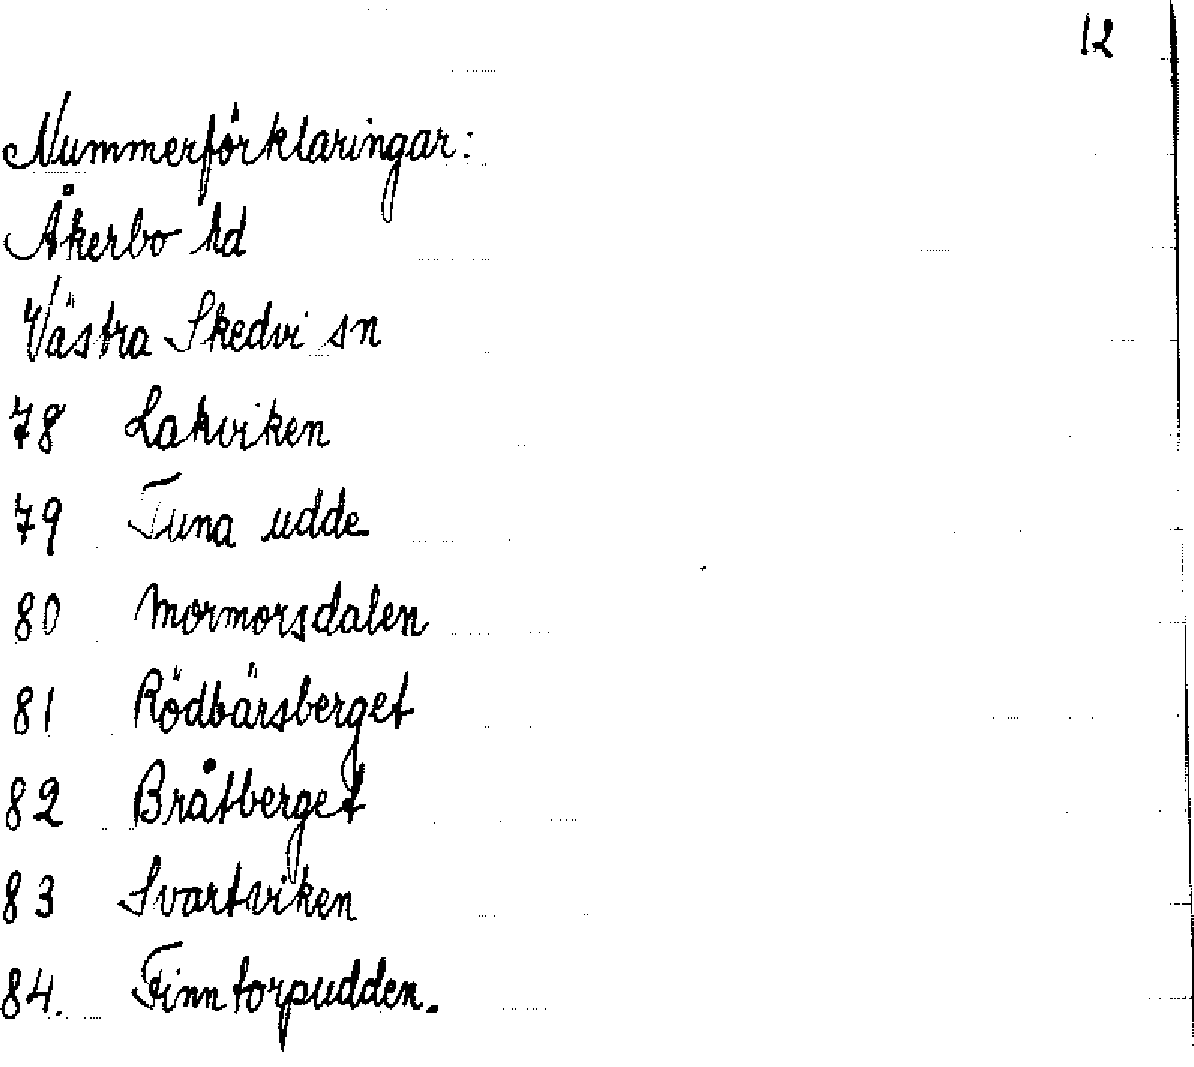 12
Nummerförklaringar:
Åkerbo hd
Västra Skedvi sn
78 Lakviken
79 Tuna udde
80 Mormorsdalen
81 Rödbärsberget
82 Bråtberget
83 Svartviken
84. Finntorpudden.